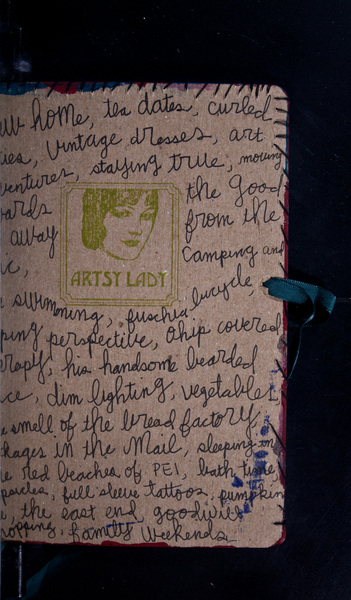 home, tea dates, curled
vintage dresses, art
staying true, moving
the good
from the
away
ARTSY LADY
Camping and
swimming, fuschia bicycle,
perspective, Ohip covered
his handsome bearded
dim lighting, vegetables,
smell of the bread factory,
in the mail, sleeping in
red beaches of PEI, bath time,
full sleeve tattoos, pumpkin
, the east end goodwill
family weekends